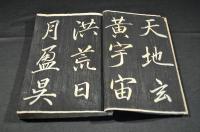 天地玄
黃宇宙
洪荒日
月盈昃